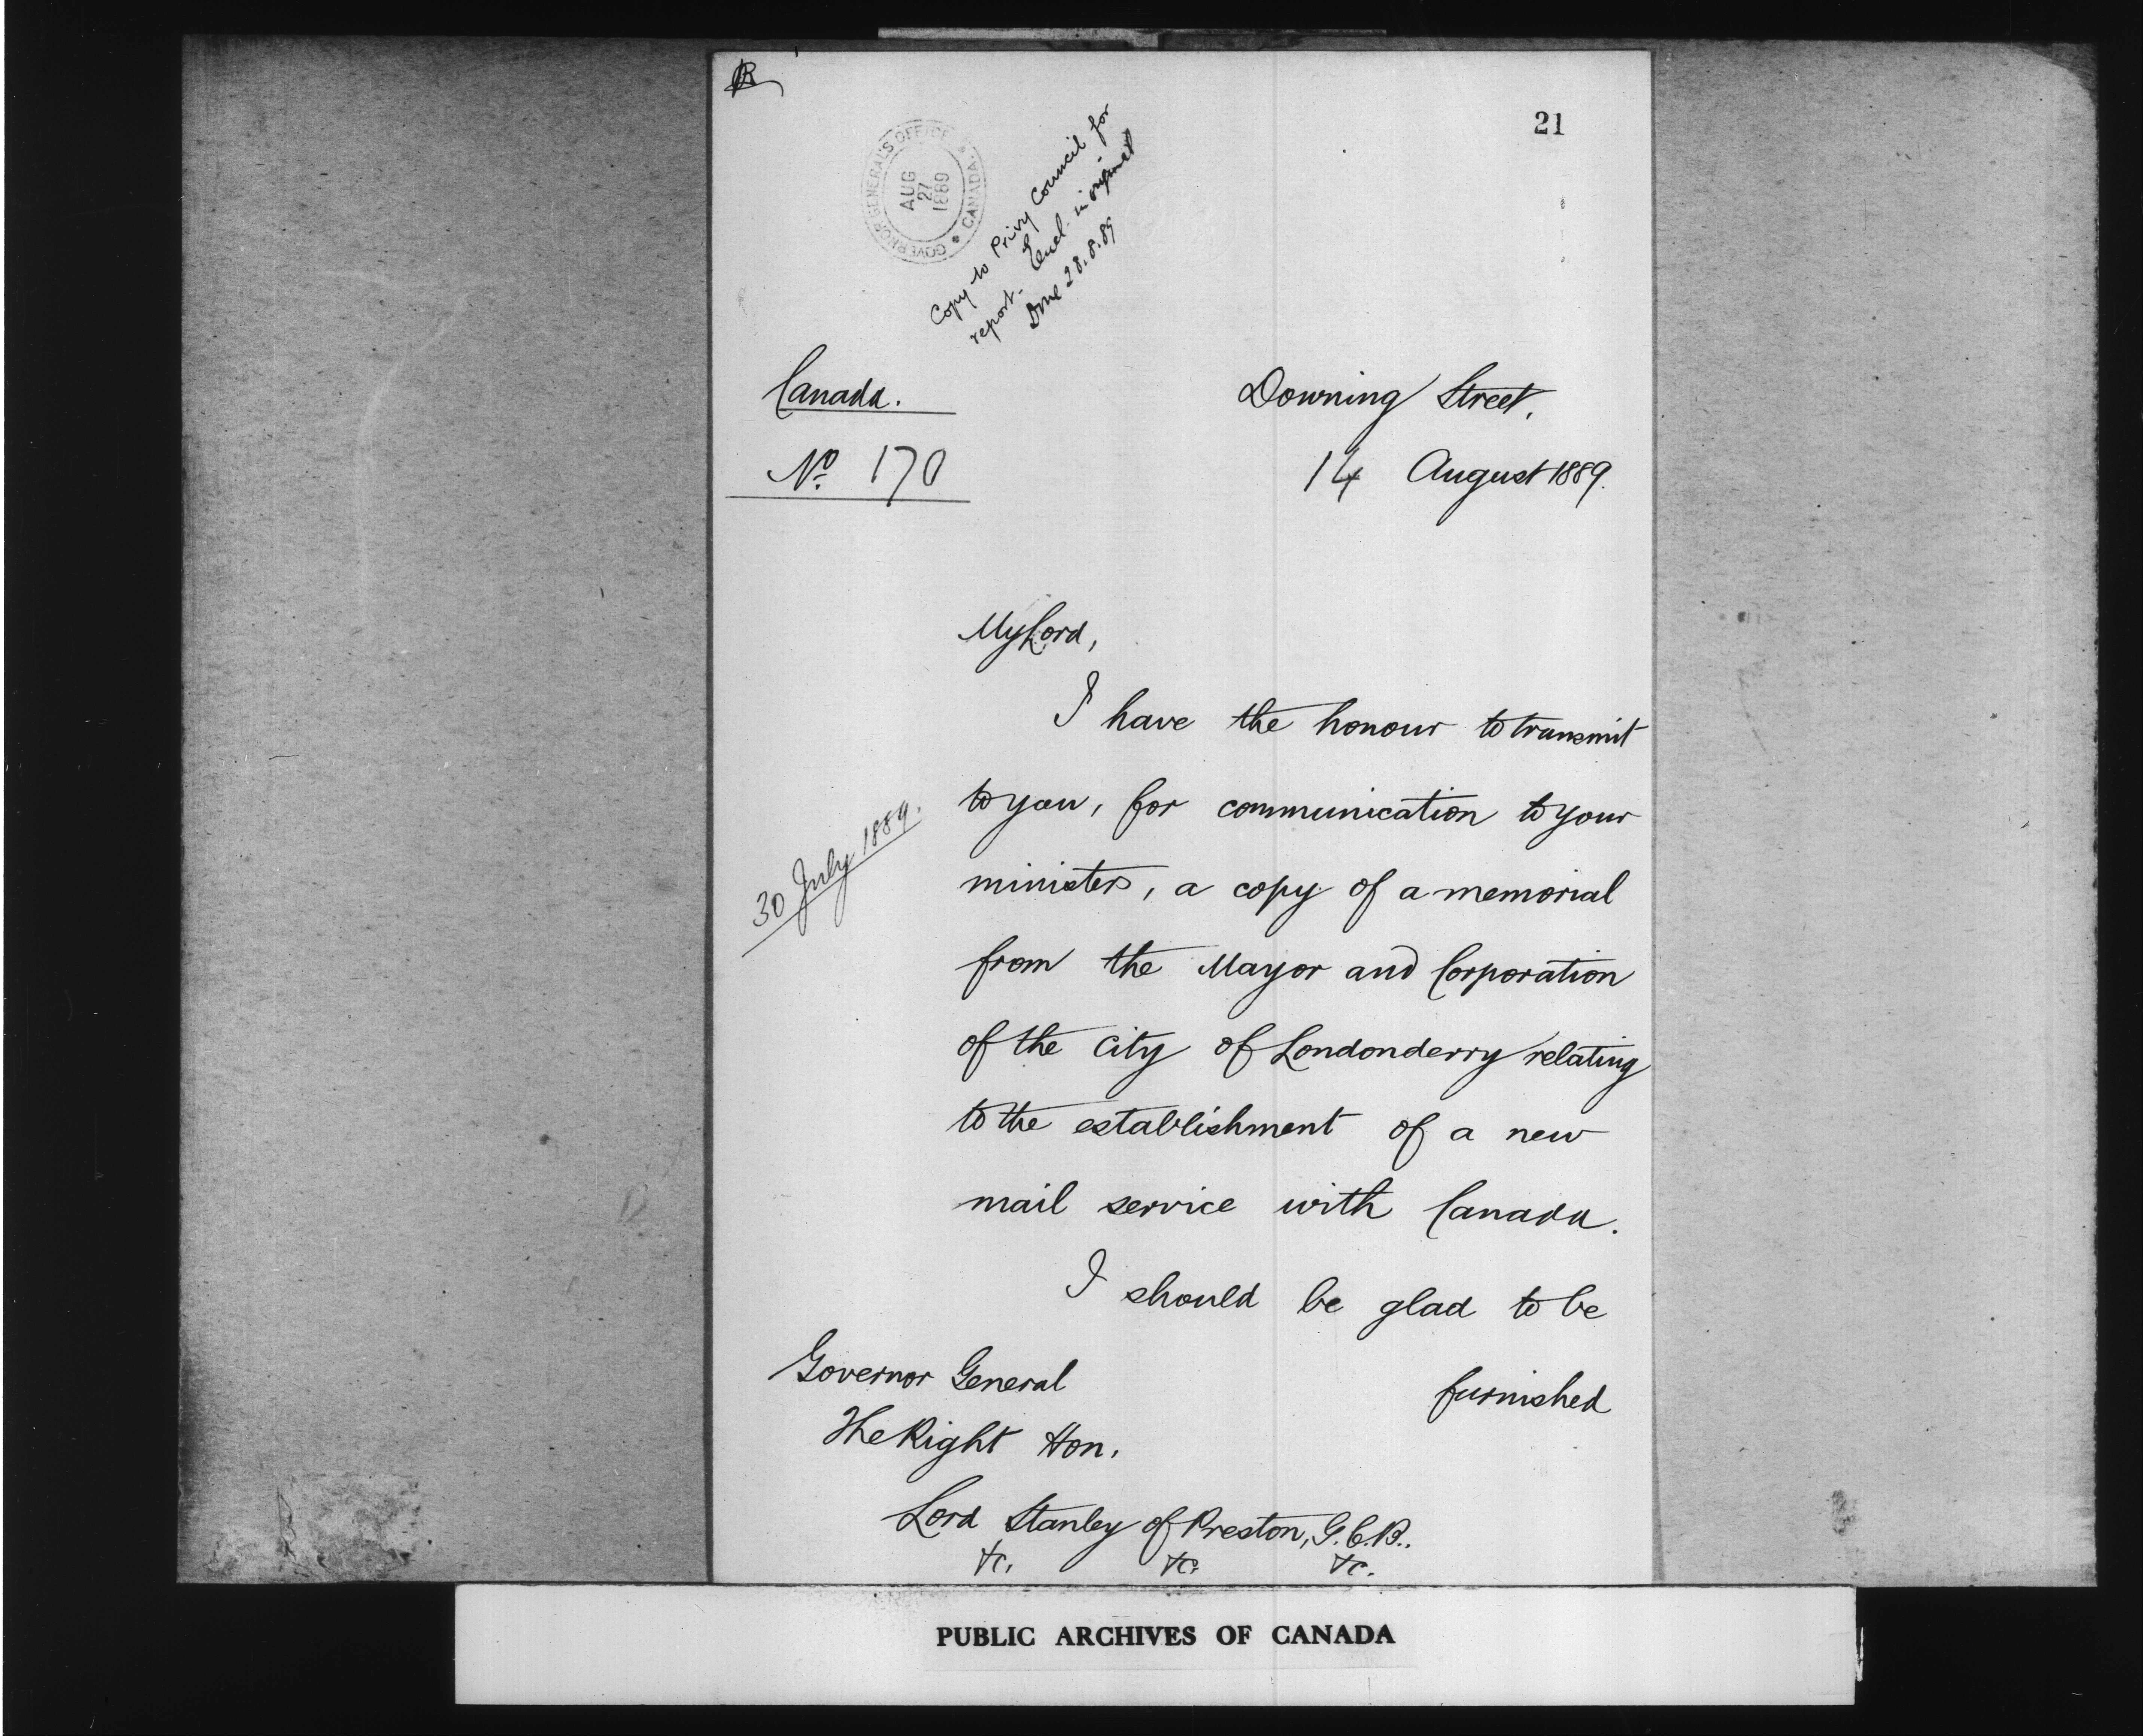 21
GOVERNOR GENERAL'S OFFICE * CANADA. *
AUG
27
1889
Copy to Privy Council for
report - Encl. in original
Done 28.8.89
Canada.
Nº 170
Downing Street,
14 August 1889.
My Lord,
I have the honour to transmit
to you, for communication to your
ministers, a copy of a memorial
from the Mayor and Corporation
of the city of Londonderry relating
to the establishment of a new
mail service with Canada.
30 July 1889.
I should be glad to be
furnished
Governor General
The Right Hon.
Lord Stanley of Preston, G.C.B..
&c. &c. &c.
PUBLIC ARCHIVES OF CANADA